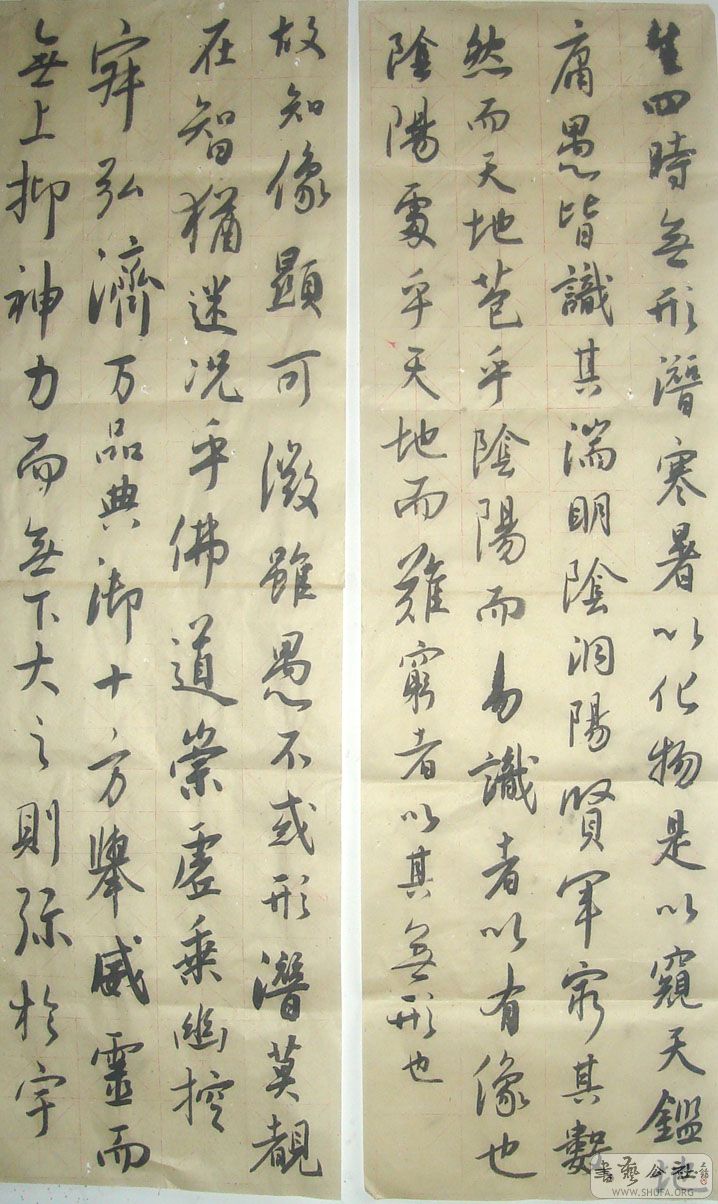 生四時無形潛寒暑以化物是以窺天鑑地
庸愚皆識其湍明陰洞陽賢罕窮其數
然而天地苞乎陰陽而易識者以有像也
陰陽處乎天地而難窮者以其無形也
故知像顯可徵雖愚不或形潛莫覩
在智猶迷況乎佛道崇虛乘幽控
寂弘濟万品典御十方舉威靈而
無上抑神力而無下大之則弥於宇
書藝公社
WWW.SHUFA.ORG